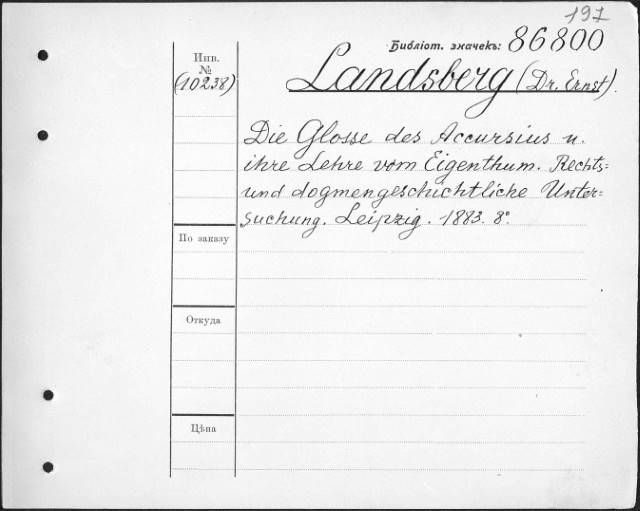 191
Библіот. значекъ: 86800
Инв.
№
(10238)
Landsberg (Dr. Ernst).
Die Glosse des Accursius u.
ihre Lehre vom Eigenthum. Rechts=
und dogmengeschichtliche Unter=
suchung. Leipzig. 1883. 8°.
По заказу
Откуда
Цѣна